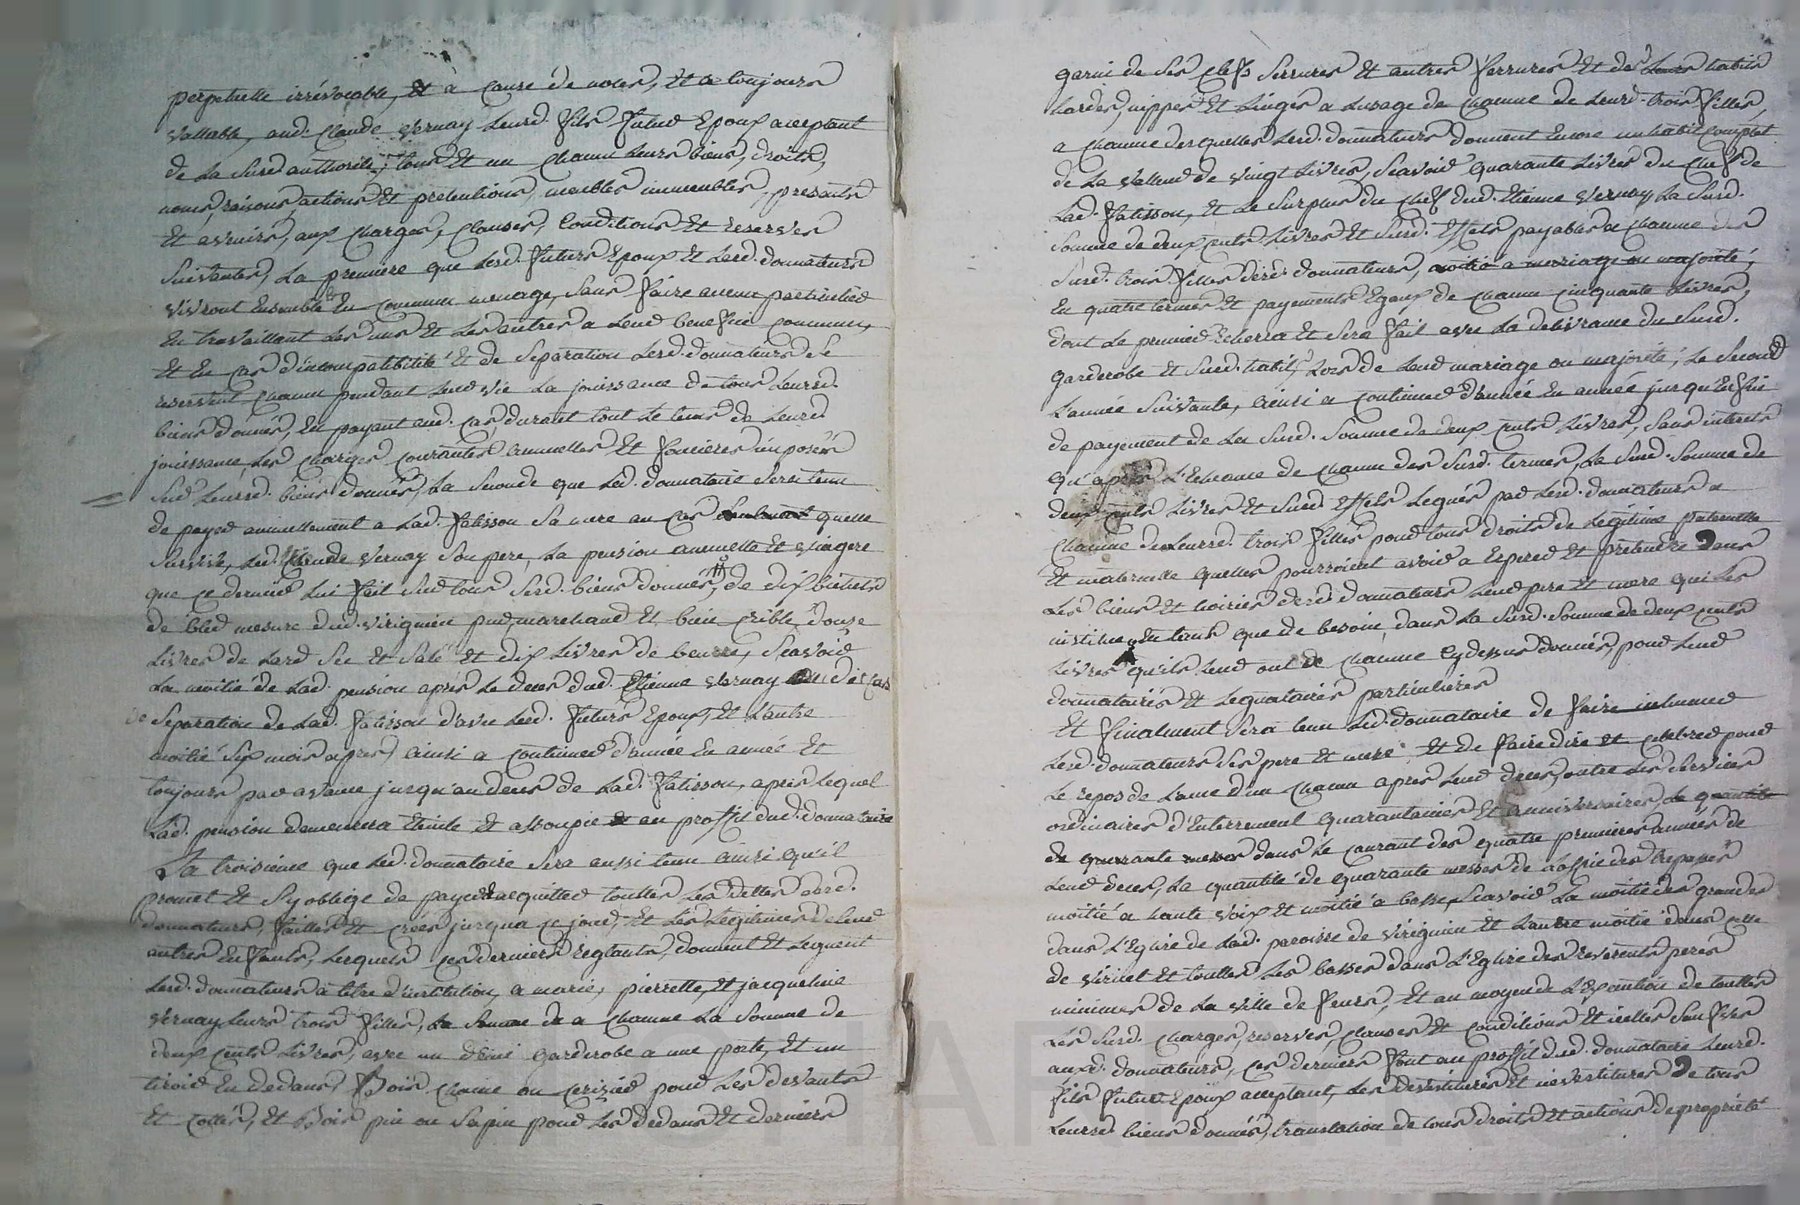 perpetuelle irrévocable, et a cause de noces, et a toujours
vallable, aud. Claude Vernay leurd. fils futur Epoux acceptant
de la Susd authorité, tous et un chacun leurs biens, droits,
noms, raisons, actions et pretentions, meubles immeubles, presants
et avenirs, aux charges, clauses, Conditions et reserves
Suivantes, La premiere que lesd. futurs Epoux et lesd. donnateurs
vivront Ensemble En commun menage, Sans faire aucun particulier
En travaillant les uns et les autres a leur benefice commun,
et En cas d'incompatibilité et de Separation lesd. donnateurs se
reservent chacun pendant leur vie la jouissance de tous leursd.
biens donnés, En payant aud. cas durant tout le tems de leurd
jouissance les charges courantes annuelles et foncieres imposés
Sur leursd. biens donnés, La Seconde que led. donnataire Sera tenu
de payer annuellement a lad. Fatisson Sa mere au cas quelle
Survive, led. Vernay Son pere, La pension annuelle et viagere
que ce dernier lui fait Sur tous Sesd. biens donnés, de dix bichets
de bled mesure dud. virignieu pur, marchand et bien criblé, douze
Livres de lard Sec et Salé et dix livres de beurre, Scavoir
La moitié de lad. pension après le deces dud. Etienne Vernay ou dès cas
de Separation de lad. Fatisson d'avec lesd. futurs Epoux, et l'autre
moitié Six mois apres, ainsi a continuer d'année En année et
toujours par avance jusqu'au deces de lad. Fatisson, apres lequel
Lad. pension demeurera Eteinte et assoupie au proffit dud. donnataire
La troisieme que led. donnataire Sera aussi tenu ainsi qu'il
promet et S'y obblige de payer acquitter touttes les dettes desd.
donnateurs, faittes et créés jusqu'a ce jour, et les Legitimes de leurs
autres Enfants, lesquels ces derniers reglants, donnent et leguent
lesd. donnateurs a titre d'institution, a marie, pierrette, et jacqueline
Vernay leurs trois filles, a chacune La Somme de
deux cents livres, avec un garderobe a une porte, et un
tiroir En dedans, Bois chene ou cerizier pour les devants
et cottés, et Bois pin ou Sapin pour les dedans et derniers
garni de Ses clefs Serrures et autres ferrures et des habits
hardes, nippes et linges a lusage de chacune de leursd. trois filles,
a chacune desquelles lesd. donnateurs donnent Encore un habit complet
de la valleur de vingt Livres, Scavoir quarante livres du chef de
Lad. Fatisson, et le Surplus du chef dud. Etienne Vernay, La Susd.
Somme de deux cents livres et Susd. Effets payables a chacune des
Susd. trois filles desd. donnateurs,
En quatre termes et payements Egaux de chacun cinquante livres,
dont le premier Echerra et Sera fait avec la delivrance du Susd.
garderobe et Susd. habit, Lors de leur mariage ou majorité, le Second
L'année Suivante, ainsi a continuer d'année En année jusqu'Enfin
de payement de la Susd. Somme de deux cents livres, Sans interets
qu'après L'Echeance de chacun des Susd. termes, La Susd. Somme de
deux cents livres et Susd. Effets legués par lesd. donnateurs a
chacune de leursd. trois filles pour tous droits de legitime paternelle
et maternelle quelles pourroient avoir a Esperer et pretendre dans
les biens et hoiries desd. donnateurs leur pere et mere qui les
institue, En tant que de besoin, dans la Susd. Somme de deux cents
livres qu'ils leur ont a chacune cydessus donnés, pour leur
donnataires et legataires particulieres
Et finalement Sera tenu led. donnataire de faire inhumer
lesd. donnateurs Ses pere et mere, et de faire dire et celebrer pour
le repos de lame d'un chacun apres leur deces, outre les Services
ordinaires d'Enterrement quarantaines et anniversaires, la quantité
de quarante messes dans le courant des quatre premieres années de
leur deces, La quantité de quarante messes de l'office des trepassés
moitié a haute voix et moitié a basse, Scavoir La moitié des grandes
dans L'Eglise de lad. paroisse de virignieu et L'autre moitié dans celle
de viricel et touttes les basses dans L'Eglise des reverents peres
minimes de la ville de feurs, et au moyen de L'Execution de touttes
les Susd. charges, reserves, clauses et conditions et icelles Sauvées
auxd. donnateurs, ces derniers font au proffit dud. donnataire leurd.
fils futur Epoux acceptant, les devestitures et investitures de tous
leursd. biens donnés, translation de tous droits et actions de propriété